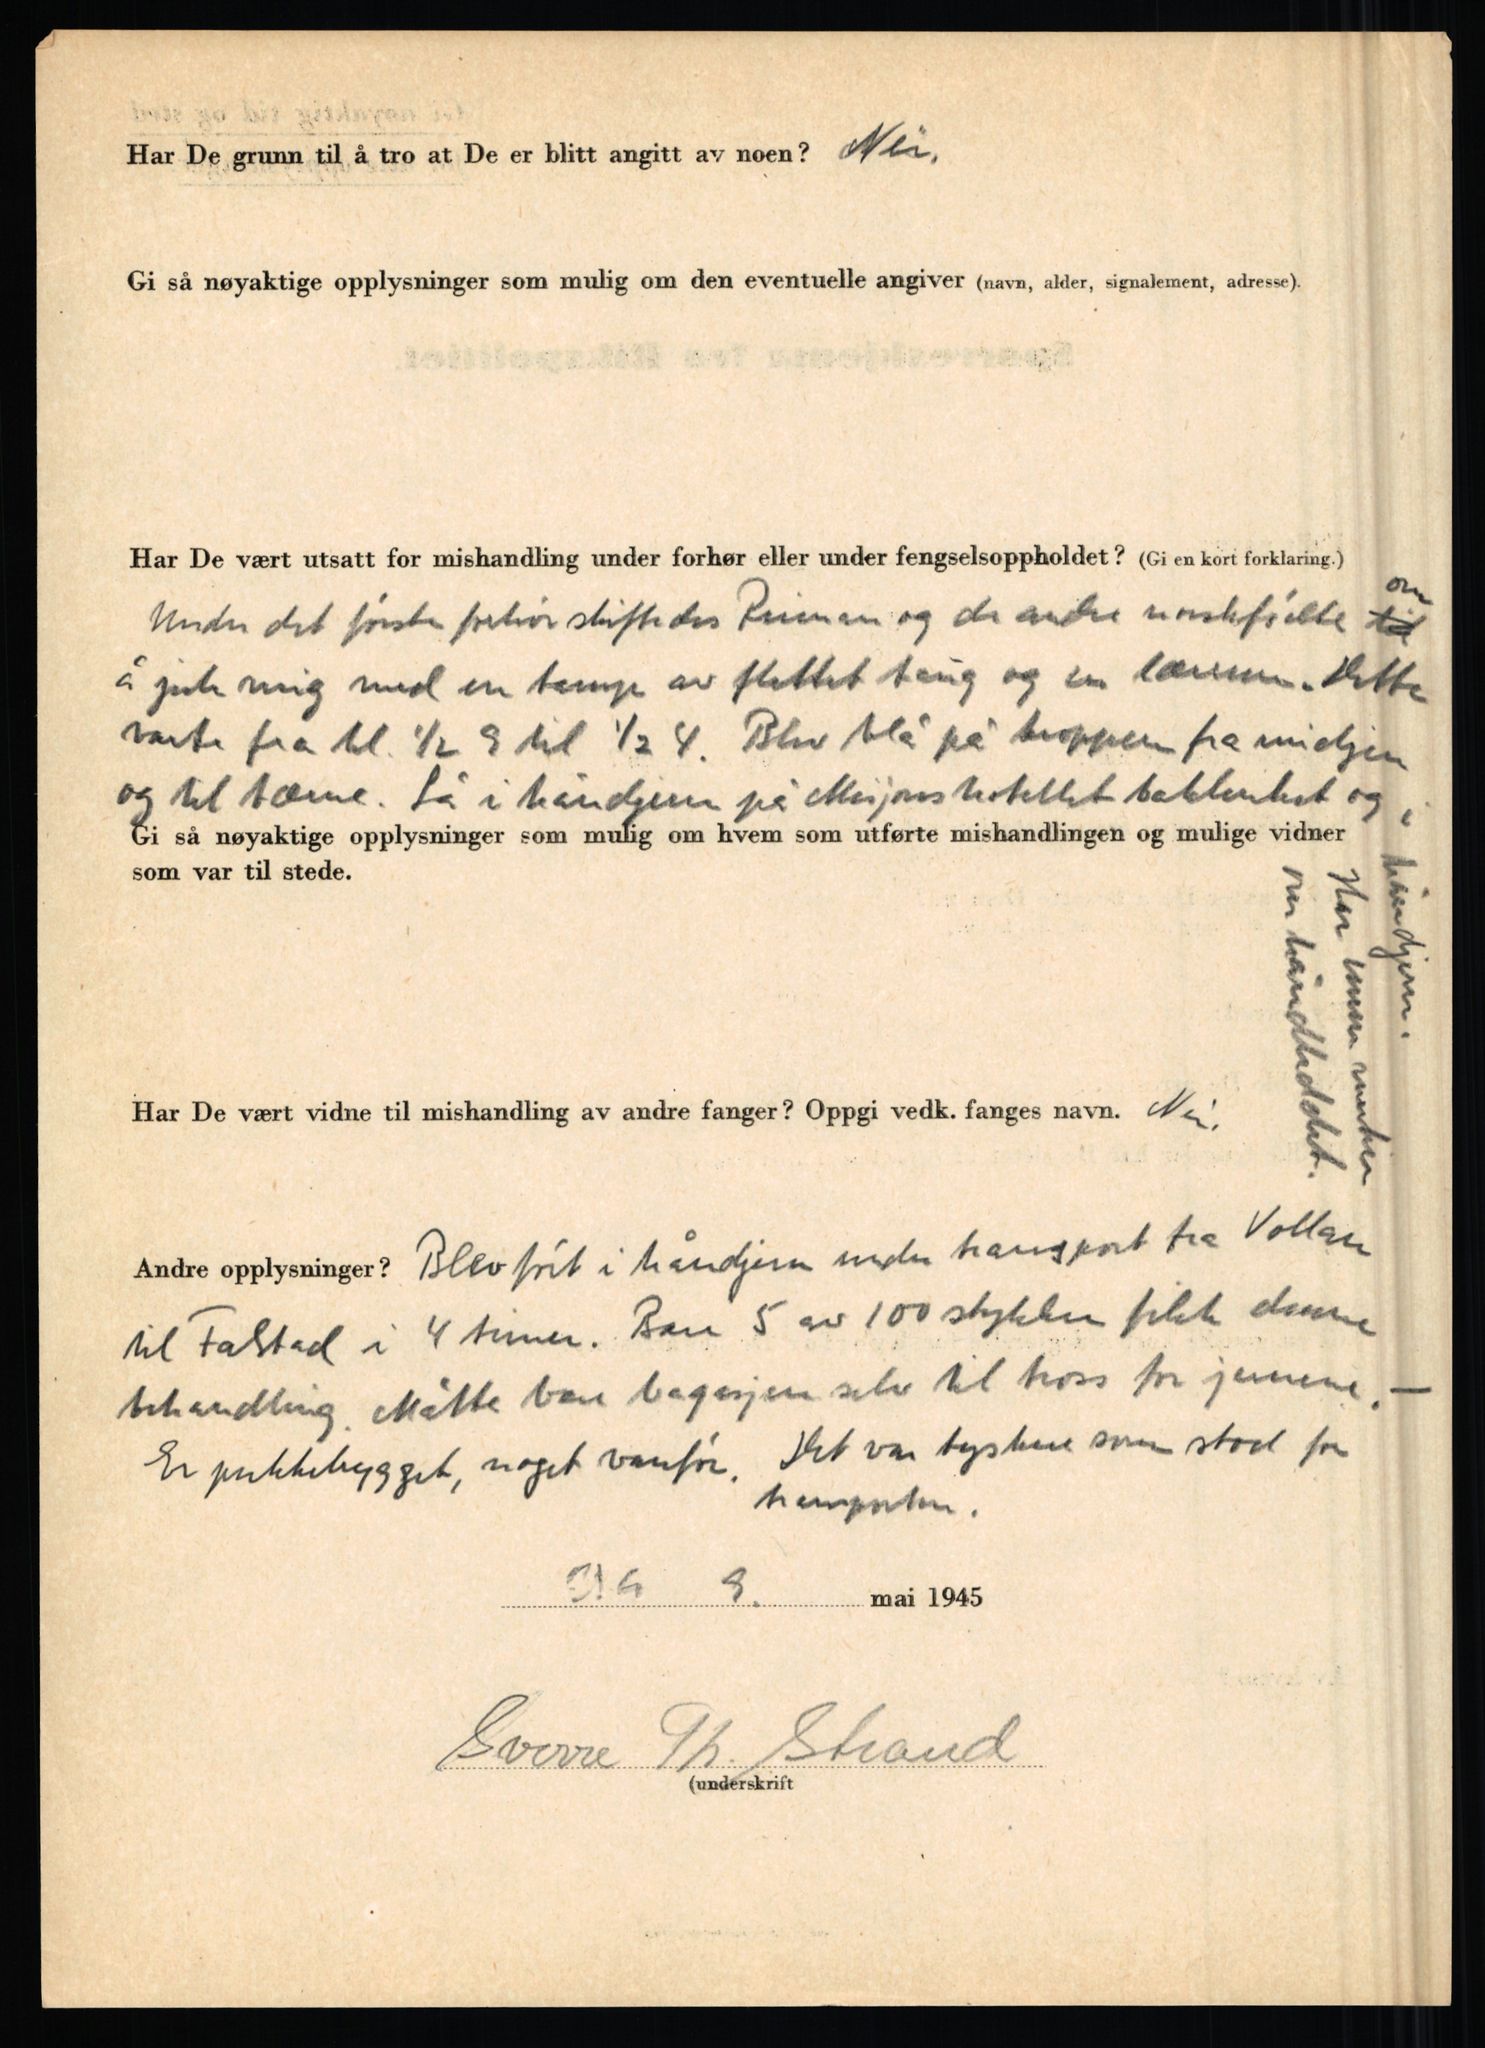 Har De grunn til å tro at De er blitt angitt av noen? Nei.
Gi så nøyaktige opplysninger som mulig om den eventuelle angiver (navn, alder, signalement, adresse).
Har De vært utsatt for mishandling under forhør eller under fengselsoppholdet? (Gi en kort forklaring.)
Under det första forhör skiftedes Rinnan og de andre norskfödte til om
å jule mig med en tamp av flettet taug og en lærrem. Dette
varte fra kl. 1/2 9 til 1/2 4. Blev blå på kroppen fra midjen
og til tærne. Lå i håndjern på Misjonshotellet bakbundet og i
håndjern.
Har ennu merker
om håndleddet.
Gi så nøyaktige opplysninger som mulig om hvem som utførte mishandlingen og mulige vidner
som var til stede.
Har De vært vidne til mishandling av andre fanger? Oppgi vedk. fanges navn. Nei.
Andre opplysninger? Blev fört i håndjern under transport fra Vollan
til Falstad i 4 timer. Bare 5 av 100 stykker fikk denne
behandling. Måtte bære bagasjen selv til tross for jernene. —
Er pukkelrygget, noget vanför. Det var tyskere som stod for
transporten.
9. mai 1945
Sverre Th. Strand
(underskrift